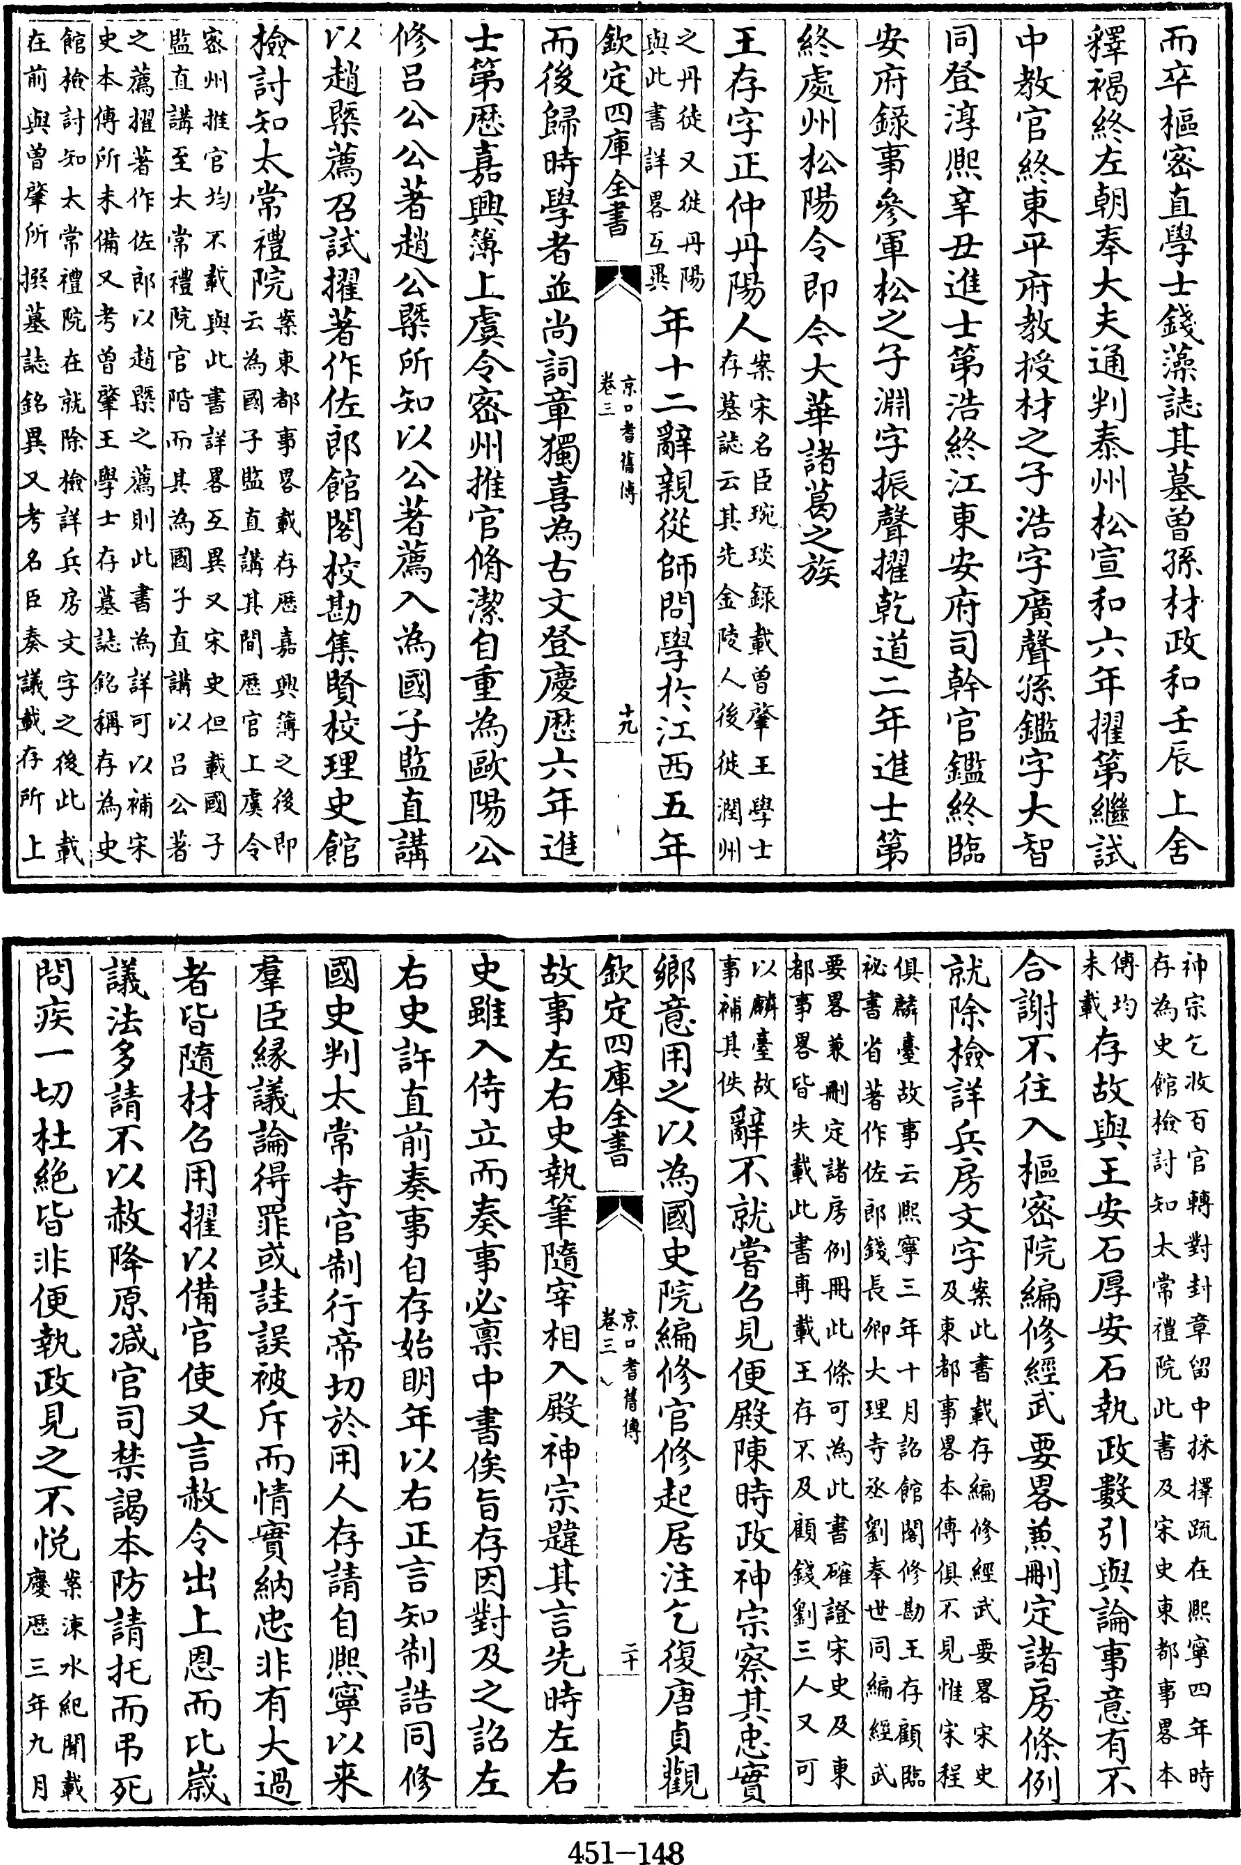 而卒樞密直學士錢藻誌其墓曾孫材政和壬辰上舍
釋褐終左朝奉大夫通判泰州松宣和六年擢第繼試
中教官終東平府教授材之子浩字廣聲孫鑑字大智
同登淳熙辛丑進士第浩終江東安府司幹官鑑終臨
安府錄事參軍松之子淵字振聲擢乾道二年進士第
終處州松陽令即今大華諸葛之族
王存字正仲丹陽人
案宋名臣琬琰録載曾肇王學士
存墓誌云其先金陵人後徙潤州
之丹徒又徙丹陽
與此書詳畧互異
年十二辭親從師問學於江西五年
欽定四庫全書
京口耆舊傳
卷三
十九
而後歸時學者並尚詞章獨喜為古文登慶厯六年進
士第厯嘉興簿上虞令密州推官脩潔自重為歐陽公
修吕公公著趙公槩所知以公著薦入為國子監直講
以趙槩薦召試擢著作佐郎館閣校勘集賢校理史館
檢討知太常禮院
案東都事畧載存厯嘉興簿之後即
云為國子監直講其間厯官上虞令
密州推官均不載與此書詳畧互異又宋史但載國子
監直講至太常禮院官階而其為國子直講以吕公著
之薦擢著作佐郎以趙槩之薦則此書為詳可以補宋
史本傳所未備又考曾肇王學士存墓誌銘稱存為史
館檢討知太常禮院在就除檢詳兵房文字之後此載
在前與曾肇所撰墓誌銘異又考名臣奏議載存所上
神宗乞收百官轉對封章留中採擇疏在熙寧四年時
存為史館檢討知太常禮院此書及宋史東都事畧本
傳均
未載
存故與王安石厚安石執政數引與論事意有不
合謝不往入樞密院編修經武要畧兼刪定諸房條例
就除檢詳兵房文字
案此書載存編修經武要畧宋史
及東都事畧本傳俱不見惟宋程
俱麟臺故事云熙寧三年十月詔館閣修勘王存顧臨
祕書省著作佐郎錢長卿大理寺丞劉奉世同編經武
要畧兼刪定諸房例冊此條可為此書確證宋史及東
都事畧皆失載此書專載王存不及顧錢劉三人又可
以麟臺故
事補其佚
辭不就嘗召見便殿陳時政神宗察其忠實
鄉意用之以為國史院編修官修起居注乞復唐貞觀
欽定四庫全書
京口耆舊傳
卷三
二十
故事左右史執筆隨宰相入殿神宗韙其言先時左右
史雖入侍立而奏事必禀中書俟旨存因對及之詔左
右史許直前奏事自存始明年以右正言知制誥同修
國史判太常寺官制行帝切於用人存請自熙寧以来
羣臣緣議論得罪或詿誤被斥而情實納忠非有大過
者皆隨材召用擢以備官使又言赦令出上恩而比歲
議法多請不以赦降原減官司禁謁本防請托而弔死
問疾一切杜絶皆非便執政見之不悦
案涑水紀聞載
慶厯三年九月
451-148